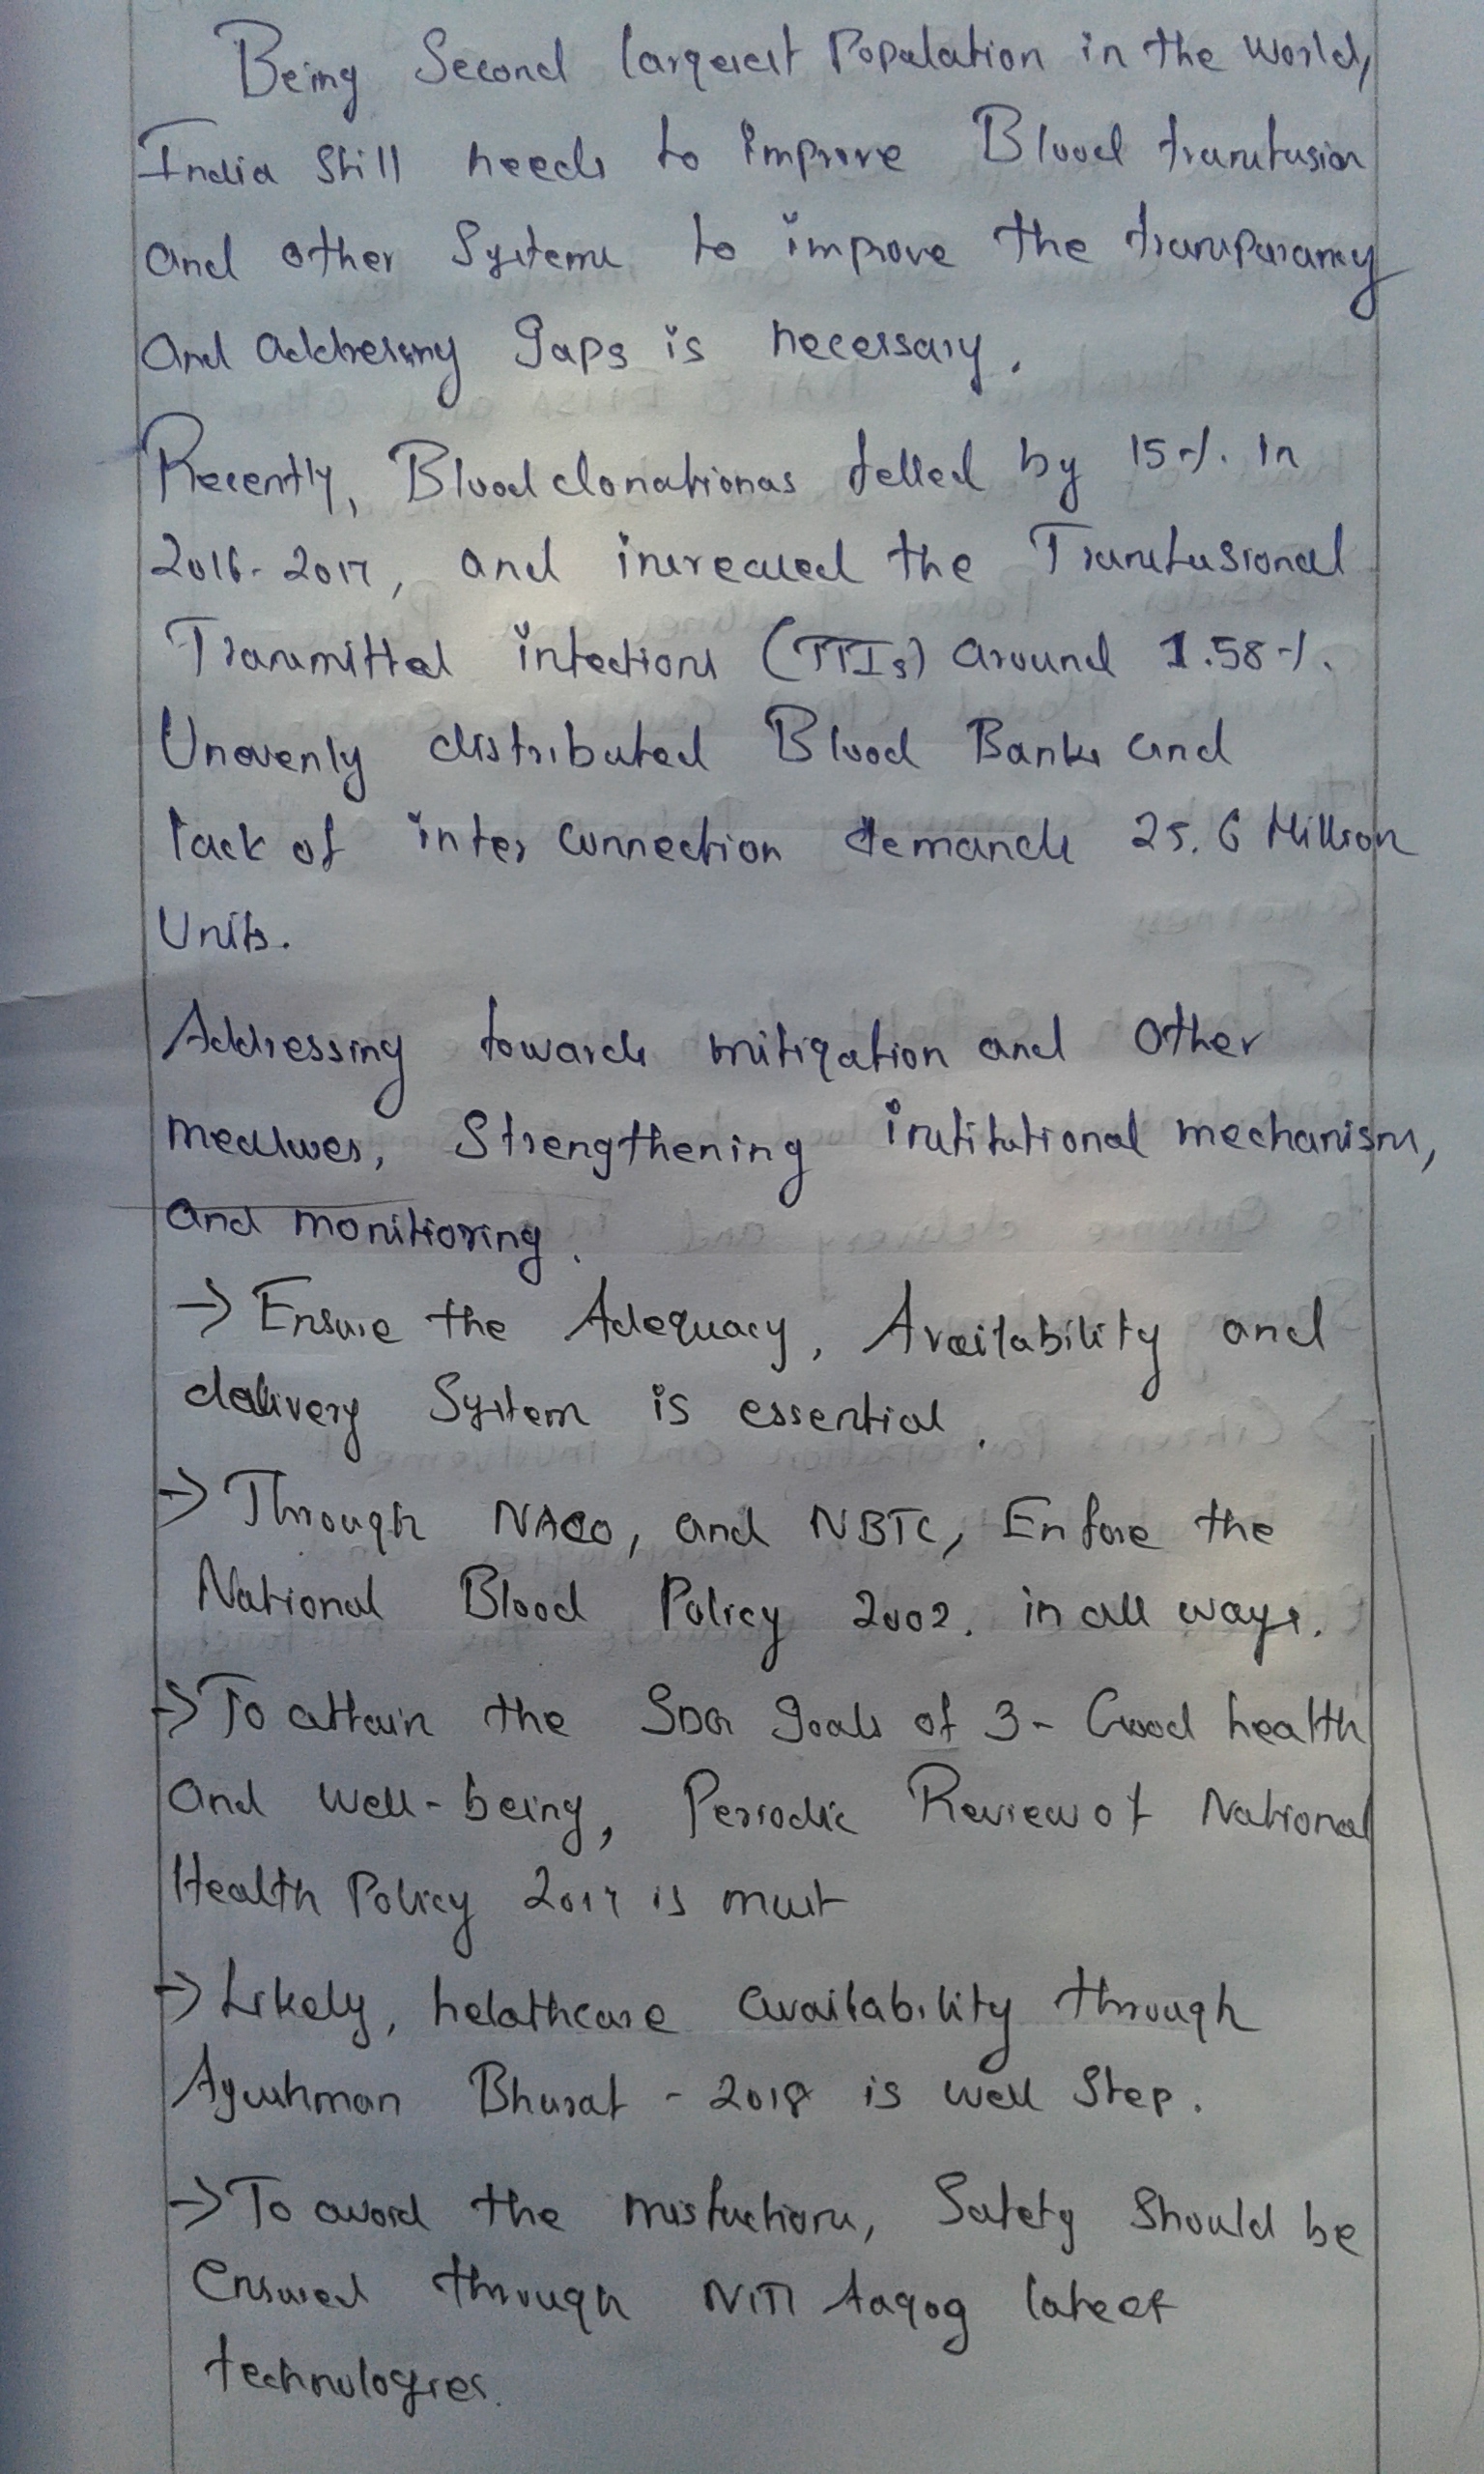 Being Second largest Population in the World,
India still needs to improve Blood transfusion
and other Systems to improve the transparancy
and addressing gaps is necessary.
Recently, Blood donationas felled by 15%. In
2016-2017, and increased the Transfusional
Transmitted infections (TTIs) around 1.58%.
Unevenly distributed Blood Banks and
lack of inter connection demands 25.6 Million
Units.
Addressing towards mitigation and other
measures, Strengthening institutional mechanism,
and monitioring.
→ Ensure the Adequacy, Availability and
delivery System is essential.
→ Through NACO, and NBTC, Enforce the
National Blood Policy 2002. in all ways.
→ To attain the SDG goals of 3- Good health
and well-being, Periodic Review of National
Health Policy 2017 is must
→ Likely, helathcare availability through
Ayushman Bharat - 2018 is well Step.
→ To avoid the Safety Should be
ensured through NITI Aayog latest
technologies.